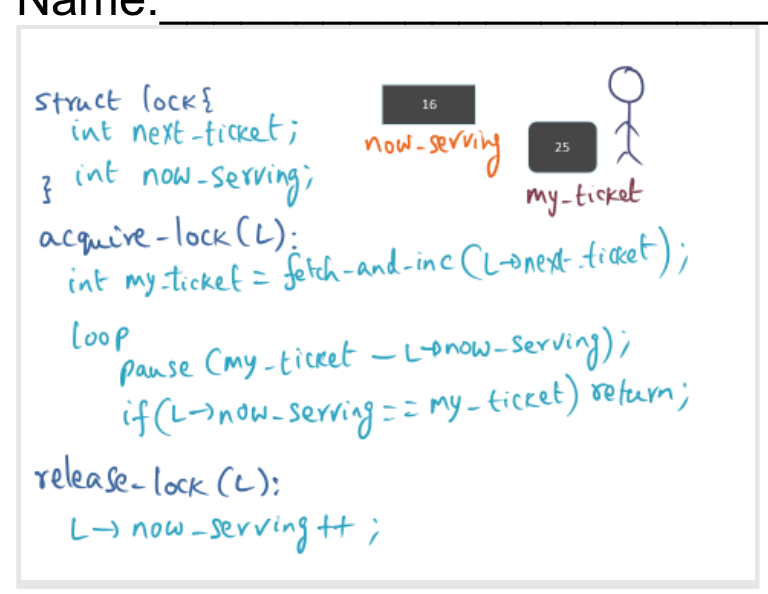 Name:
struct lock{
int next-ticket;
int now-serving;
}
16
now-serving
25
my-ticket
acquire-lock(L):
int my-ticket = fetch-and-inc(L→next-ticket);
loop
pause (my-ticket – L→now-serving);
if(L→now-serving == my-ticket) return;
release-lock(L):
L→ now-serving++;